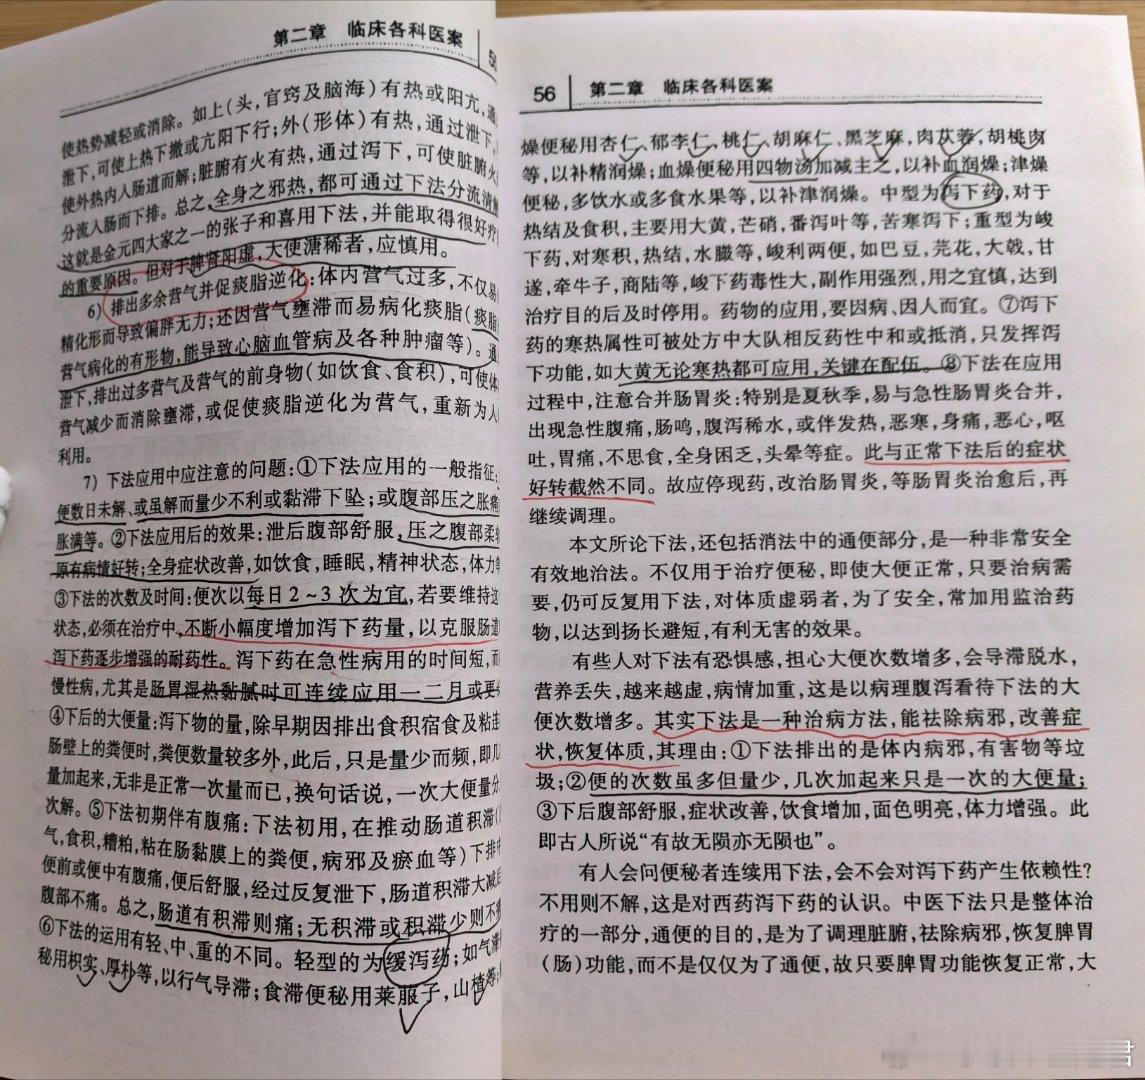 第二章 临床各科医案
使热势减轻或消除。如上(头,官窍及脑海)有热或阳亢,通
泄下,可使上热下撤或亢阳下行;外(形体)有热,通过泄下,
使外热内入肠道而解;脏腑有火有热,通过泻下,可使脏腑火
分流入肠而下排。总之,全身之邪热,都可通过下法分流清
这就是金元四大家之一的张子和喜用下法,并能取得很好疗
的重要原因。但对于脾肾阳虚,大便溏稀者,应慎用。
6)排出多余营气并促痰脂逆化:体内营气过多,不仅易
精化形而导致偏胖无力;还因营气壅滞而易病化痰脂(痰脂
营气病化的有形物,能导致心脑血管病及各种肿瘤等)。通
泄下,排出过多营气及营气的前身物(如饮食、食积),可使体
营气减少而消除壅滞,或促使痰脂逆化为营气,重新为人
利用。
7)下法应用中应注意的问题:①下法应用的一般指征:
便数日未解、或虽解而量少不利或黏滞下坠;或腹部压之胀痛
胀满等。②下法应用后的效果:泄后腹部舒服,压之腹部柔
原有病情好转;全身症状改善,如饮食,睡眠,精神状态,体力等
③下法的次数及时间:便次以每日2~3次为宜,若要维持这
状态,必须在治疗中,不断小幅度增加泻下药量,以克服肠道
泻下药逐步增强的耐药性。泻下药在急性病用的时间短,而
慢性病,尤其是肠胃湿热黏腻时可连续应用一二月或要
④下后的大便量:泻下物的量,除早期因排出食积宿食及粘连
肠壁上的粪便时,粪便数量较多外,此后,只是量少而频,即几
量加起来,无非是正常一次量而已,换句话说,一次大便量分
次解。⑤下法初期伴有腹痛:下法初用,在推动肠道积滞(
气,食积,糟粕,粘在肠黏膜上的粪便,病邪及瘀血等)下排中
便前或便中有腹痛,便后舒服,经过反复泄下,肠道积滞大减后
腹部不痛。总之,肠道有积滞则痛;无积滞或积滞少则不
⑥下法的运用有轻、中、重的不同。轻型的为缓泻药;如气滞
秘用枳实、厚朴等,以行气导滞;食滞便秘用莱服子,山楂等;
56 第二章 临床各科医案
燥便秘用杏仁,郁李仁,桃仁,胡麻仁、黑芝麻,肉苁蓉,胡桃肉
等,以补精润燥;血燥便秘用四物汤加减主之,以补血润燥;津燥
便秘,多饮水或多食水果等,以补津润燥。中型为泻下药,对于
热结及食积,主要用大黄,芒硝,番泻叶等,苦寒泻下;重型为峻
下药,对寒积,热结,水臌等,峻利两便,如巴豆,芫花,大戟,甘
遂,牵牛子,商陆等,峻下药毒性大,副作用强烈,用之宜慎,达到
治疗目的后及时停用。药物的应用,要因病、因人而宜。⑦泻下
药的寒热属性可被处方中大队相反药性中和或抵消,只发挥泻
下功能,如大黄无论寒热都可应用,关键在配伍。⑧下法在应用
过程中,注意合并肠胃炎:特别是夏秋季,易与急性肠胃炎合并,
出现急性腹痛,肠鸣,腹泻稀水,或伴发热,恶寒,身痛,恶心,呕
吐,胃痛,不思食,全身困乏,头晕等症。此与正常下法后的症状
好转截然不同。故应停现药,改治肠胃炎,等肠胃炎治愈后,再
继续调理。
本文所论下法,还包括消法中的通便部分,是一种非常安全
有效地治法。不仅用于治疗便秘,即使大便正常,只要治病需
要,仍可反复用下法,对体质虚弱者,为了安全,常加用监治药
物,以达到扬长避短,有利无害的效果。
有些人对下法有恐惧感,担心大便次数增多,会导滞脱水,
营养丢失,越来越虚,病情加重,这是以病理腹泻看待下法的大
便次数增多。其实下法是一种治病方法,能祛除病邪,改善症
状,恢复体质,其理由:①下法排出的是体内病邪,有害物等垃
圾;②便的次数虽多但量少,几次加起来只是一次的大便量;
③下后腹部舒服,症状改善,饮食增加,面色明亮,体力增强。此
即古人所说“有故无陨亦无陨也”。
有人会问便秘者连续用下法,会不会对泻下药产生依赖性?
不用则不解,这是对西药泻下药的认识。中医下法只是整体治
疗的一部分,通便的目的,是为了调理脏腑,祛除病邪,恢复脾胃
(肠)功能,而不是仅仅为了通便,故只要脾胃功能恢复正常,大